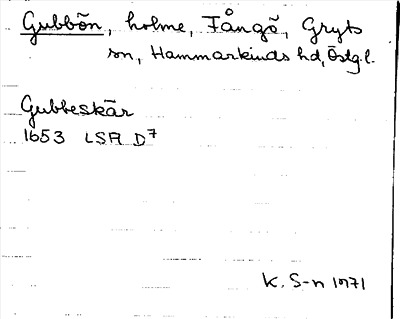 Gubbön, holme, Fångö, Gryts
sn, Hammarkinds hd, Östg.l.
Gubbeskär
1653 LSA D7
K. S-n 1971